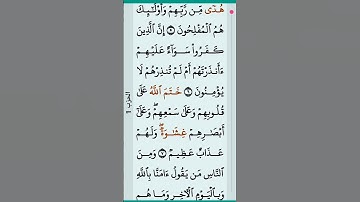 هُدًى مِّن رَّبِّهِمْ وَأُوْلَٰٓئِكَ
هُمُ الْمُفْلِحُونَ ۝ إِنَّ الَّذِينَ
كَفَرُواْ سَوَآءٌ عَلَيْهِمْ
ءَأَنذَرْتَهُمْ أَمْ لَمْ تُنذِرْهُمْ لَا
يُؤْمِنُونَ ۝ خَتَمَ اللَّهُ عَلَىٰ
قُلُوبِهِمْ وَعَلَىٰ سَمْعِهِمْ ۖ وَعَلَىٰٓ
أَبْصَٰرِهِمْ غِشَٰوَةٌ ۖ وَلَهُمْ
عَذَابٌ عَظِيمٌ ۝ وَمِنَ
النَّاسِ مَن يَقُولُ ءَامَنَّا بِاللَّهِ
وَبِالْيَوْمِ الْأٓخِرِ وَمَا هُم
الحزب 1